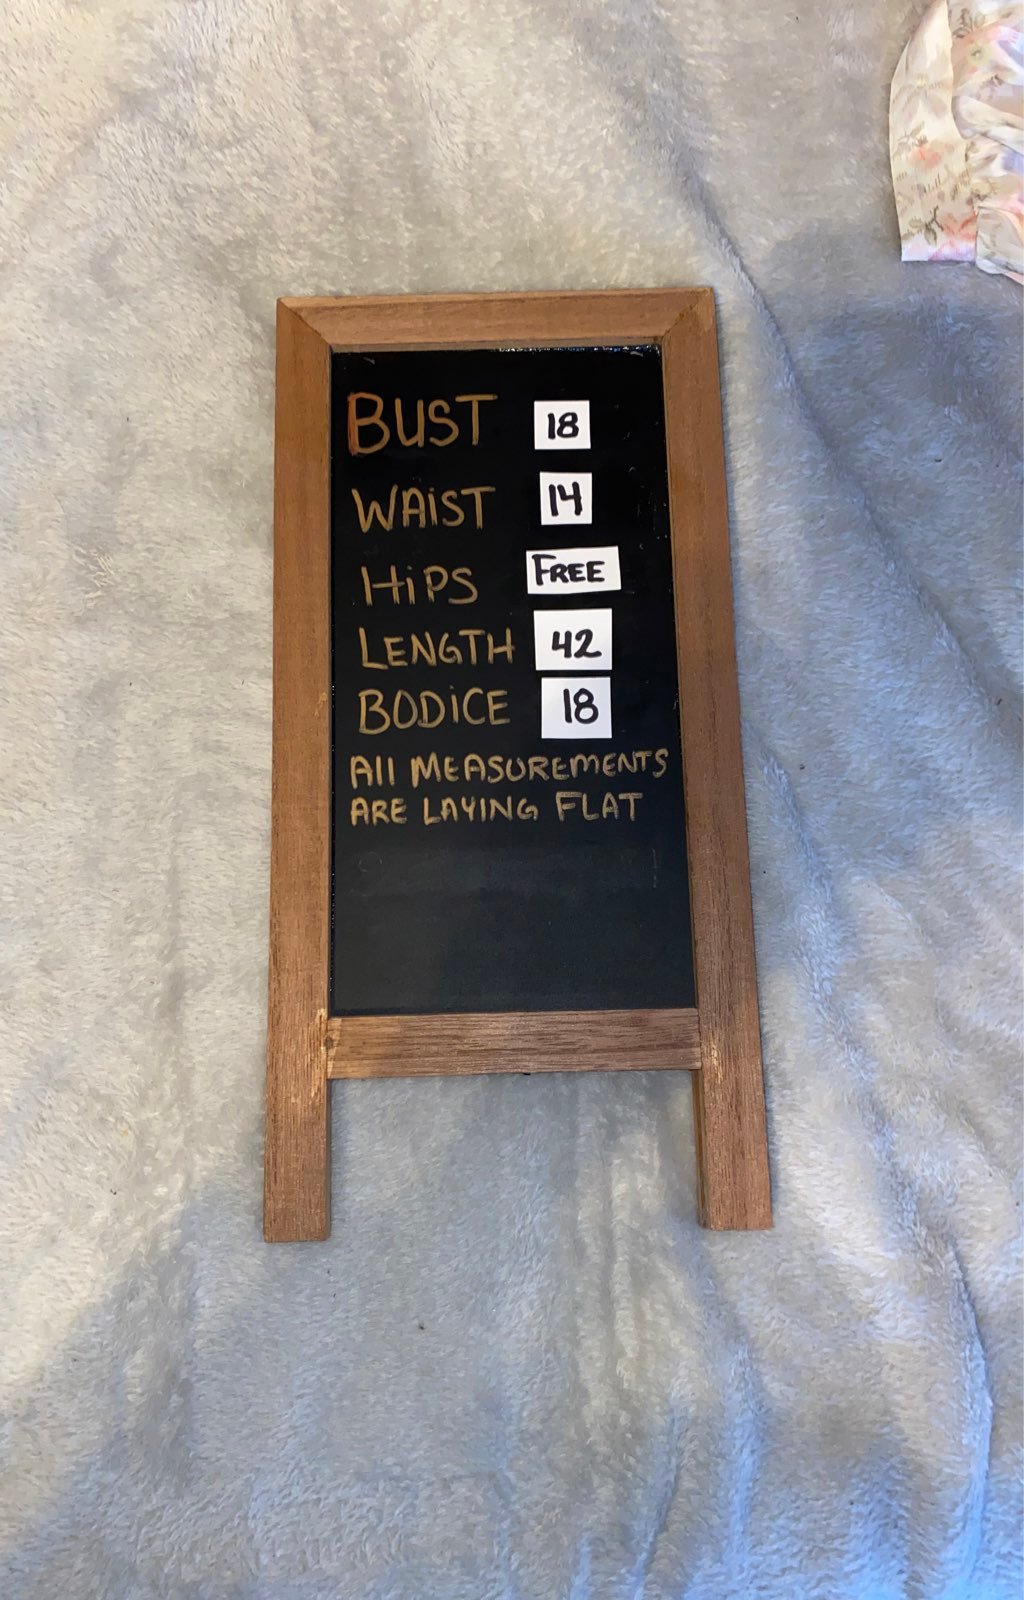 BUST 18
WAiST 14
HiPS FREE
LENGTH 42
BODiCE 18
All MEASUREMENTS
ARE LAYING FLAT